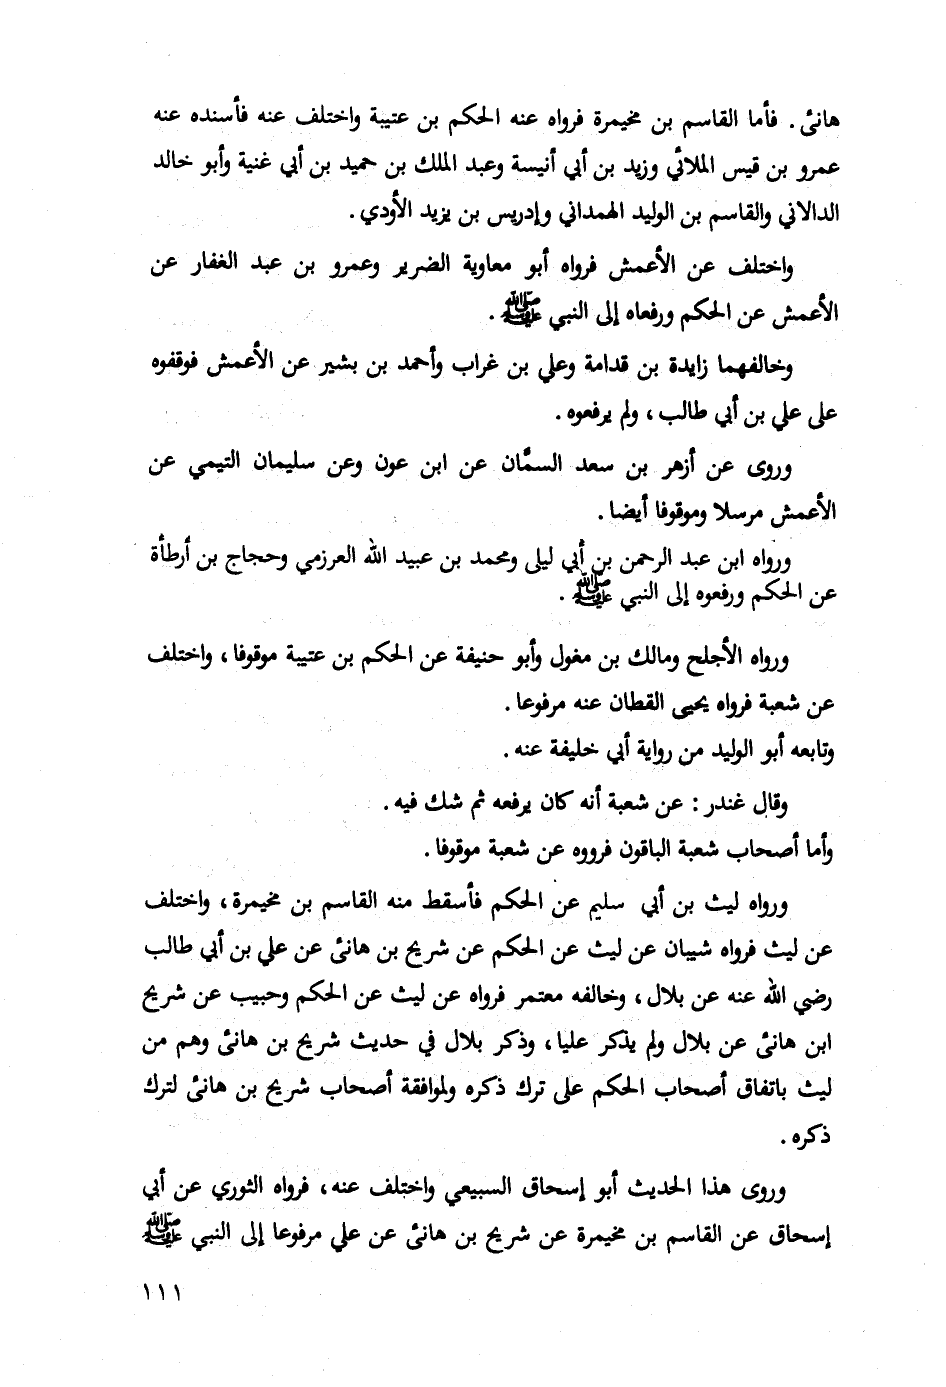 هانئ. فأما القاسم بن مخيمرة فرواه عنه الحكم بن عتيبة واختلف عنه فأسنده عنه
عمرو بن قيس الملائي وزيد بن أبي أنيسة وعبد الملك بن حميد بن أبي غنية وأبو خالد
الدالاني والقاسم بن الوليد الهمداني وإدريس بن يزيد الأودي.
واختلف عن الأعمش فرواه أبو معاوية الضرير وعمرو بن عبد الغفار عن
الأعمش عن الحكم ورفعاه إلى النبي ﷺ.
وخالفهما زايدة بن قدامة وعلي بن غراب وأحمد بن بشير عن الأعمش فوقفوه
على علي بن أبي طالب، ولم يرفعوه.
وروى عن أزهر بن سعد السمَّان عن ابن عون وعن سليمان التيمي عن
الأعمش مرسلا وموقوفا أيضا.
ورواه ابن عبد الرحمن بن أبي ليلى ومحمد بن عبيد الله العرزمي وحجاج بن أرطأة
عن الحكم ورفعوه إلى النبي ﷺ.
ورواه الأجلح ومالك بن مغول وأبو حنيفة عن الحكم بن عتيبة موقوفا، واختلف
عن شعبة فرواه يحيى القطان عنه مرفوعا.
وتابعه أبو الوليد من رواية أبي خليفة عنه.
وقال غندر: عن شعبة أنه كان يرفعه ثم شك فيه.
وأما أصحاب شعبة الباقون فرووه عن شعبة موقوفا.
ورواه ليث بن أبي سليم عن الحكم فأسقط منه القاسم بن مخيمرة، واختلف
عن ليث فرواه شيبان عن ليث عن الحكم عن شريح بن هانئ عن علي بن أبي طالب
رضي الله عنه عن بلال، وخالفه معتمر فرواه عن ليث عن الحكم وحبيب عن شريح
ابن هانئ عن بلال ولم يذكر عليا، وذكر بلال في حديث شريح بن هانئ وهم من
ليث باتفاق أصحاب الحكم على ترك ذكره ولموافقة أصحاب شريح بن هانئ لترك
ذكره.
وروى هذا الحديث أبو إسحاق السبيعي واختلف عنه، فرواه الثوري عن أبي
إسحاق عن القاسم بن مخيمرة عن شريح بن هانئ عن علي مرفوعا إلى النبي ﷺ
١١١